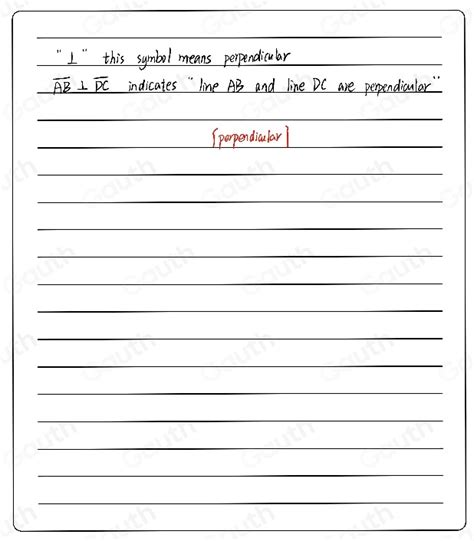 "⊥" this symbol means perpendicular
A̅B̅ ⊥ D̅C̅ indicates "line AB and line DC are perpendicular"
[perpendicular]
Gauth